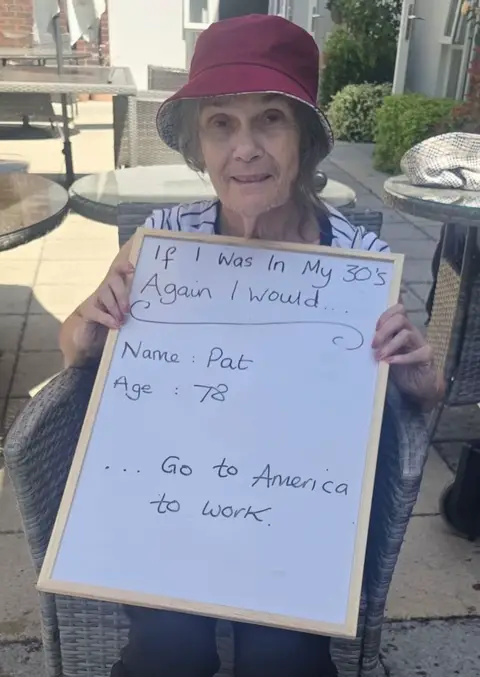 If I Was In My 30's
Again I Would...
Name : Pat
Age : 78
... Go to America
to work.